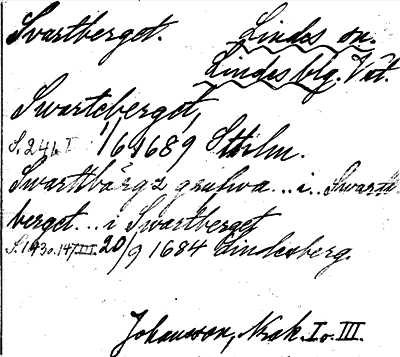 Svartberget. Lindes sn.
Lindesblg. Vst.
Swarteberget,
S. 241 I 1/6 1689 Sthlm.
Swarttbärgz grufwa... i.. Swarta
berget... i Swartberget
S. 143 o. 147 III. 20/9 1684 Lindesberg.
Johansson, Noak. I o. III.